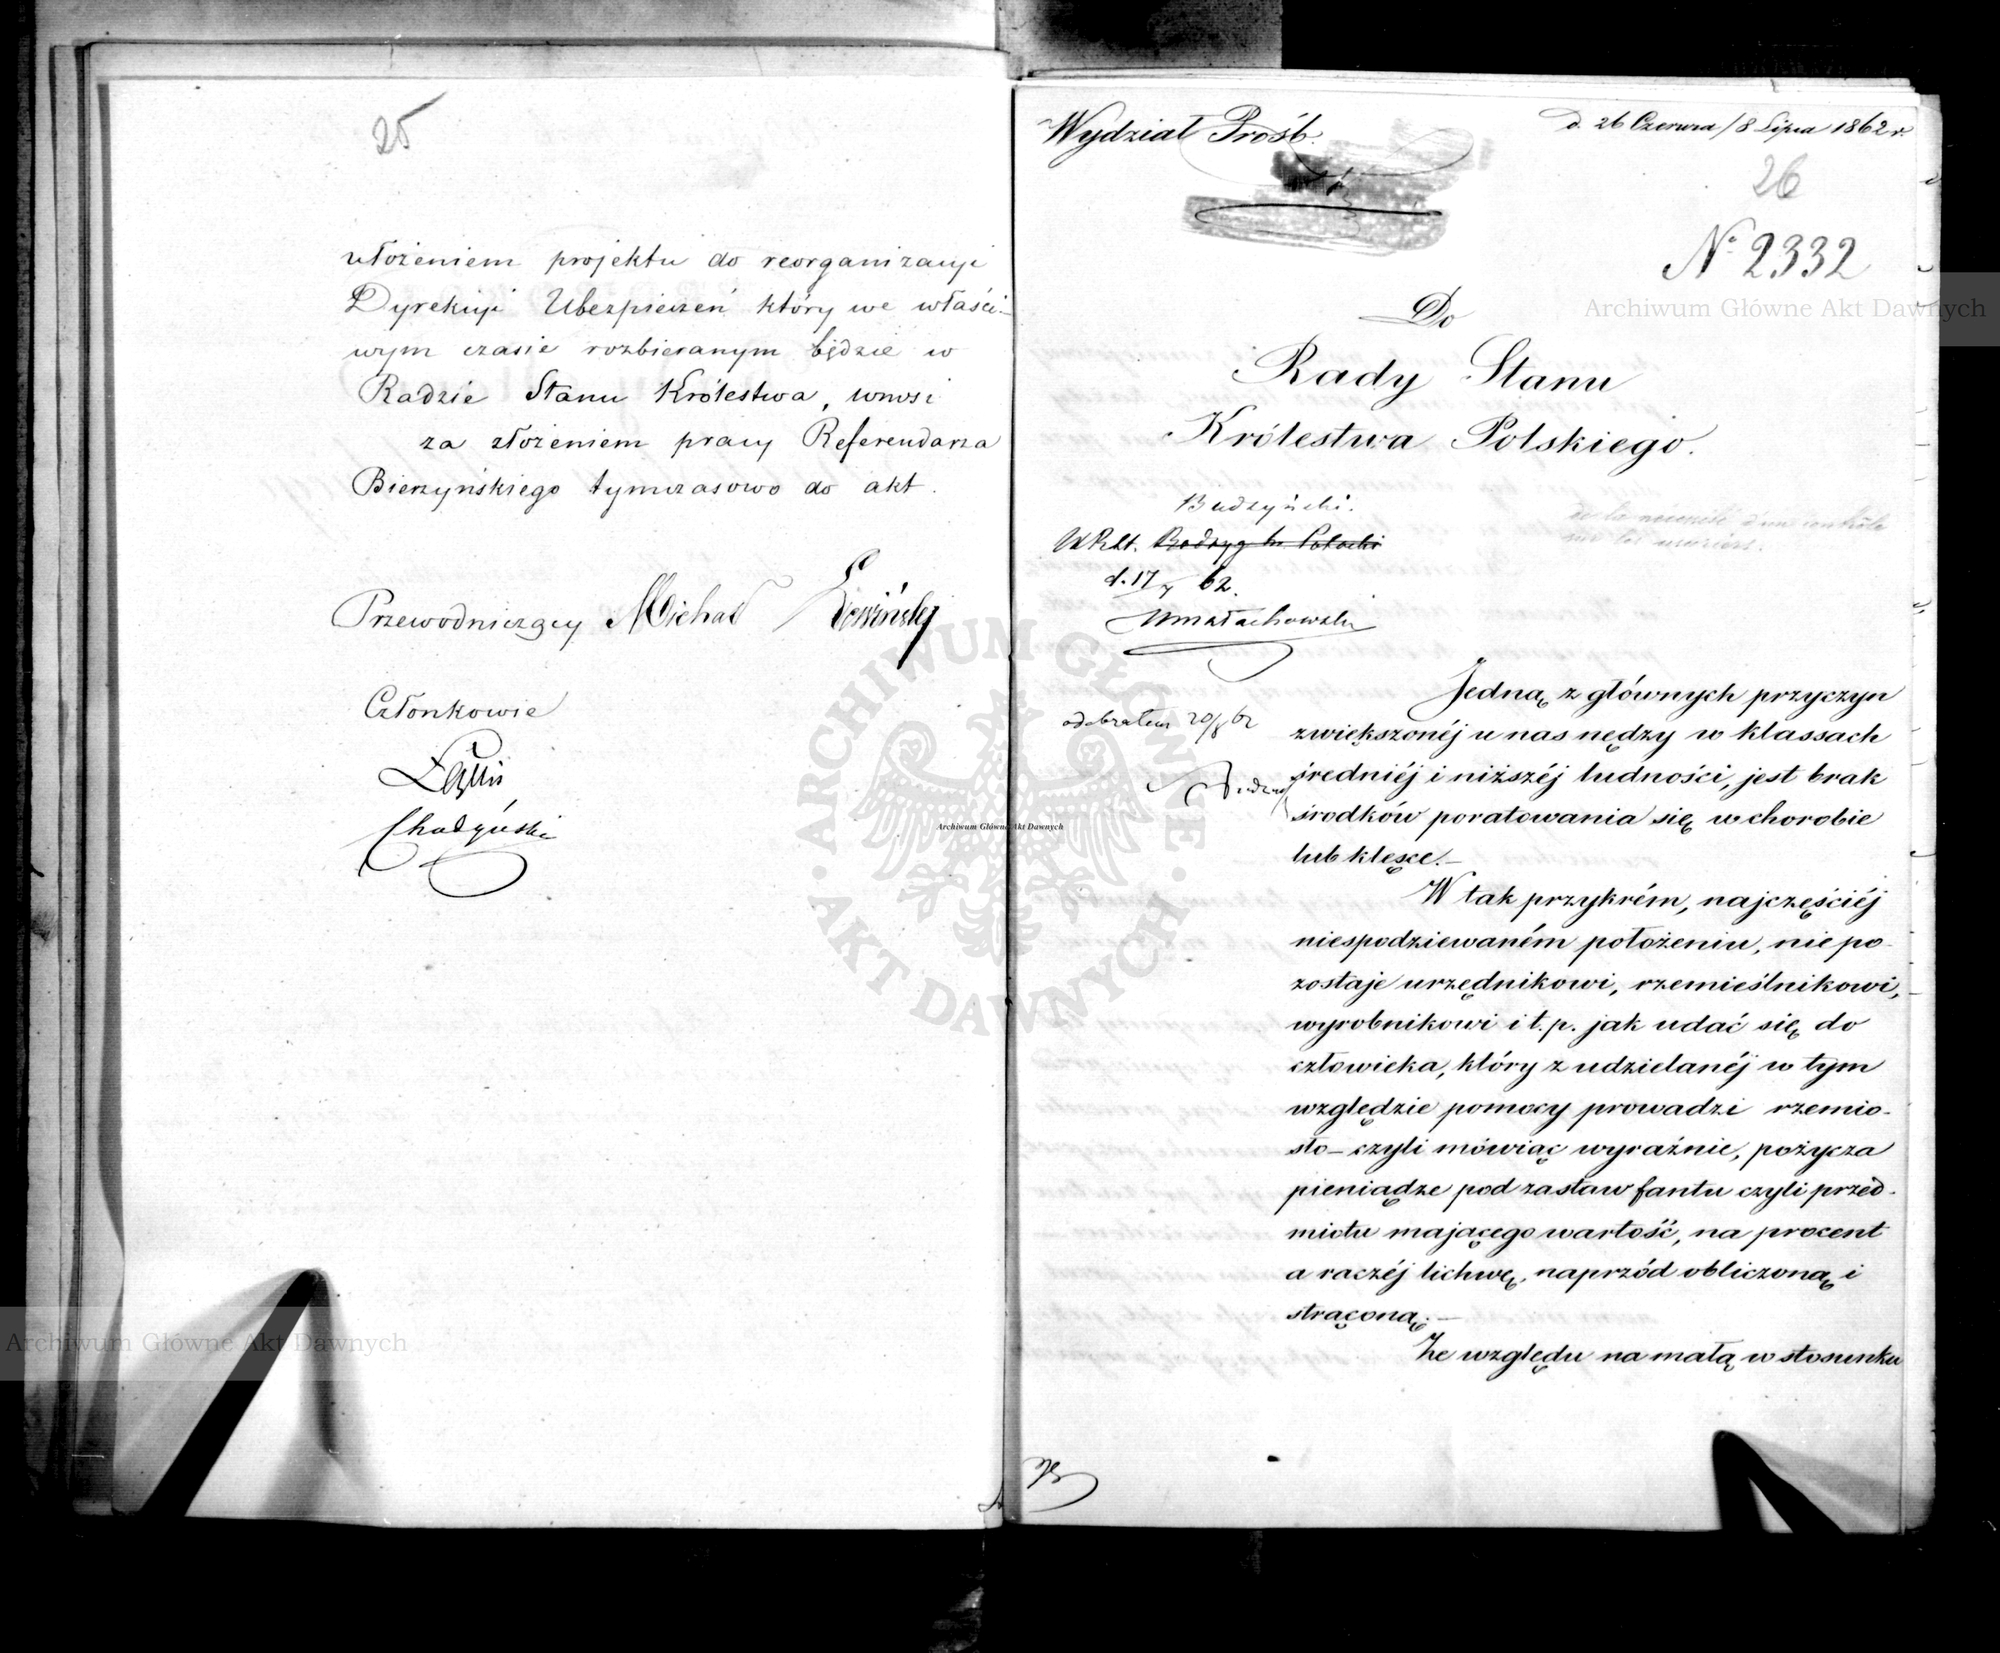 25
ułożeniem projektu do reorganizacyi
Dyrekcyi Ubezpieczeń który we właści-
wym czasie rozbieranym będzie w
Radzie Stanu Królestwa, wnosi
za złożeniem pracy Referendarza
Bierzyńskiego tymczasowo do akt.
Przewodniczący Michał
Członkowie
Wydział Próśb.
d. 26 Czerwca/8 Lipca 1862 r.
26
№ 2332
Do
Rady Stanu
Królestwa Polskiego.
Budzyński.
d. 17 62.
Małachowski
odebrałem 20/8 62
Jedną z głównych przyczyn
zwiększonéj u nas nędzy w klassach
średniéj i niższéj ludności, jest brak
środków poratowania się w chorobie
lub klęsce.—
W tak przykrém, najczęściéj
niespodziewaném położeniu, nie po-
zostaje urzędnikowi, rzemieślnikowi,
wyrobnikowi i t. p. jak udać się do
człowieka, który z udzielanéj w tym
względzie pomocy prowadzi rzemio-
sło — czyli mówiąc wyraźnie, pożycza
pieniądze pod zastaw fantu czyli przed-
miotu mającego wartość, na procent
a raczéj lichwę, naprzód obliczoną i
strąconą.—
Ze względu na małą w stosunku
Archiwum Główne Akt Dawnych
Archiwum Główne Akt Dawnych
Archiwum Główne Akt Dawnych
ARCHIWUM GŁÓWNE AKT DAWNYCH